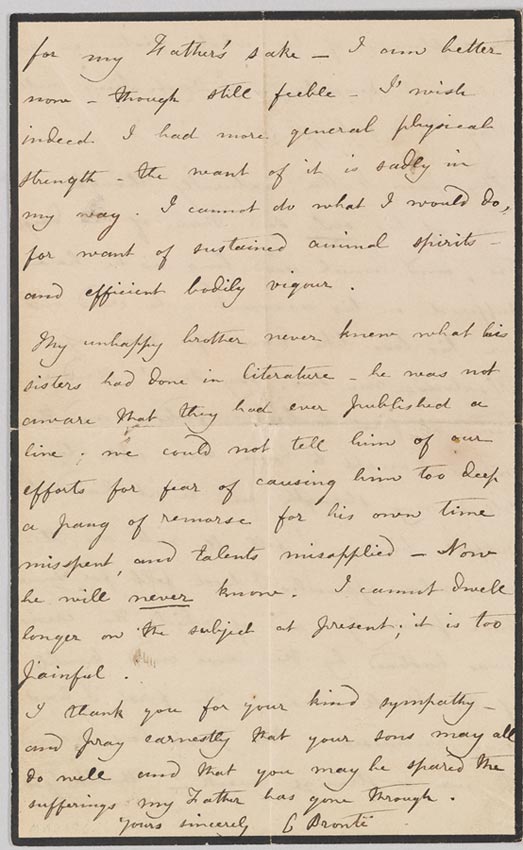 for my Father's sake – I am better
now – though still feeble – I wish
indeed I had more general physical
strength – the want of it is sadly in
my way. I cannot do what I would do,
for want of sustained animal spirits –
and efficient bodily vigour.
My unhappy brother never knew what his
sisters had done in literature – he was not
aware that they had ever published a
line; we could not tell him of our
efforts for fear of causing him too deep
a pang of remorse for his own time
misspent, and talents misapplied – Now
he will never know. I cannot dwell
longer on the subject at present; it is too
painful.
I thank you for your kind sympathy –
and pray earnestly that your sons may all
do well and that you may be spared the
sufferings my Father has gone through.
Yours sincerely C Brontë